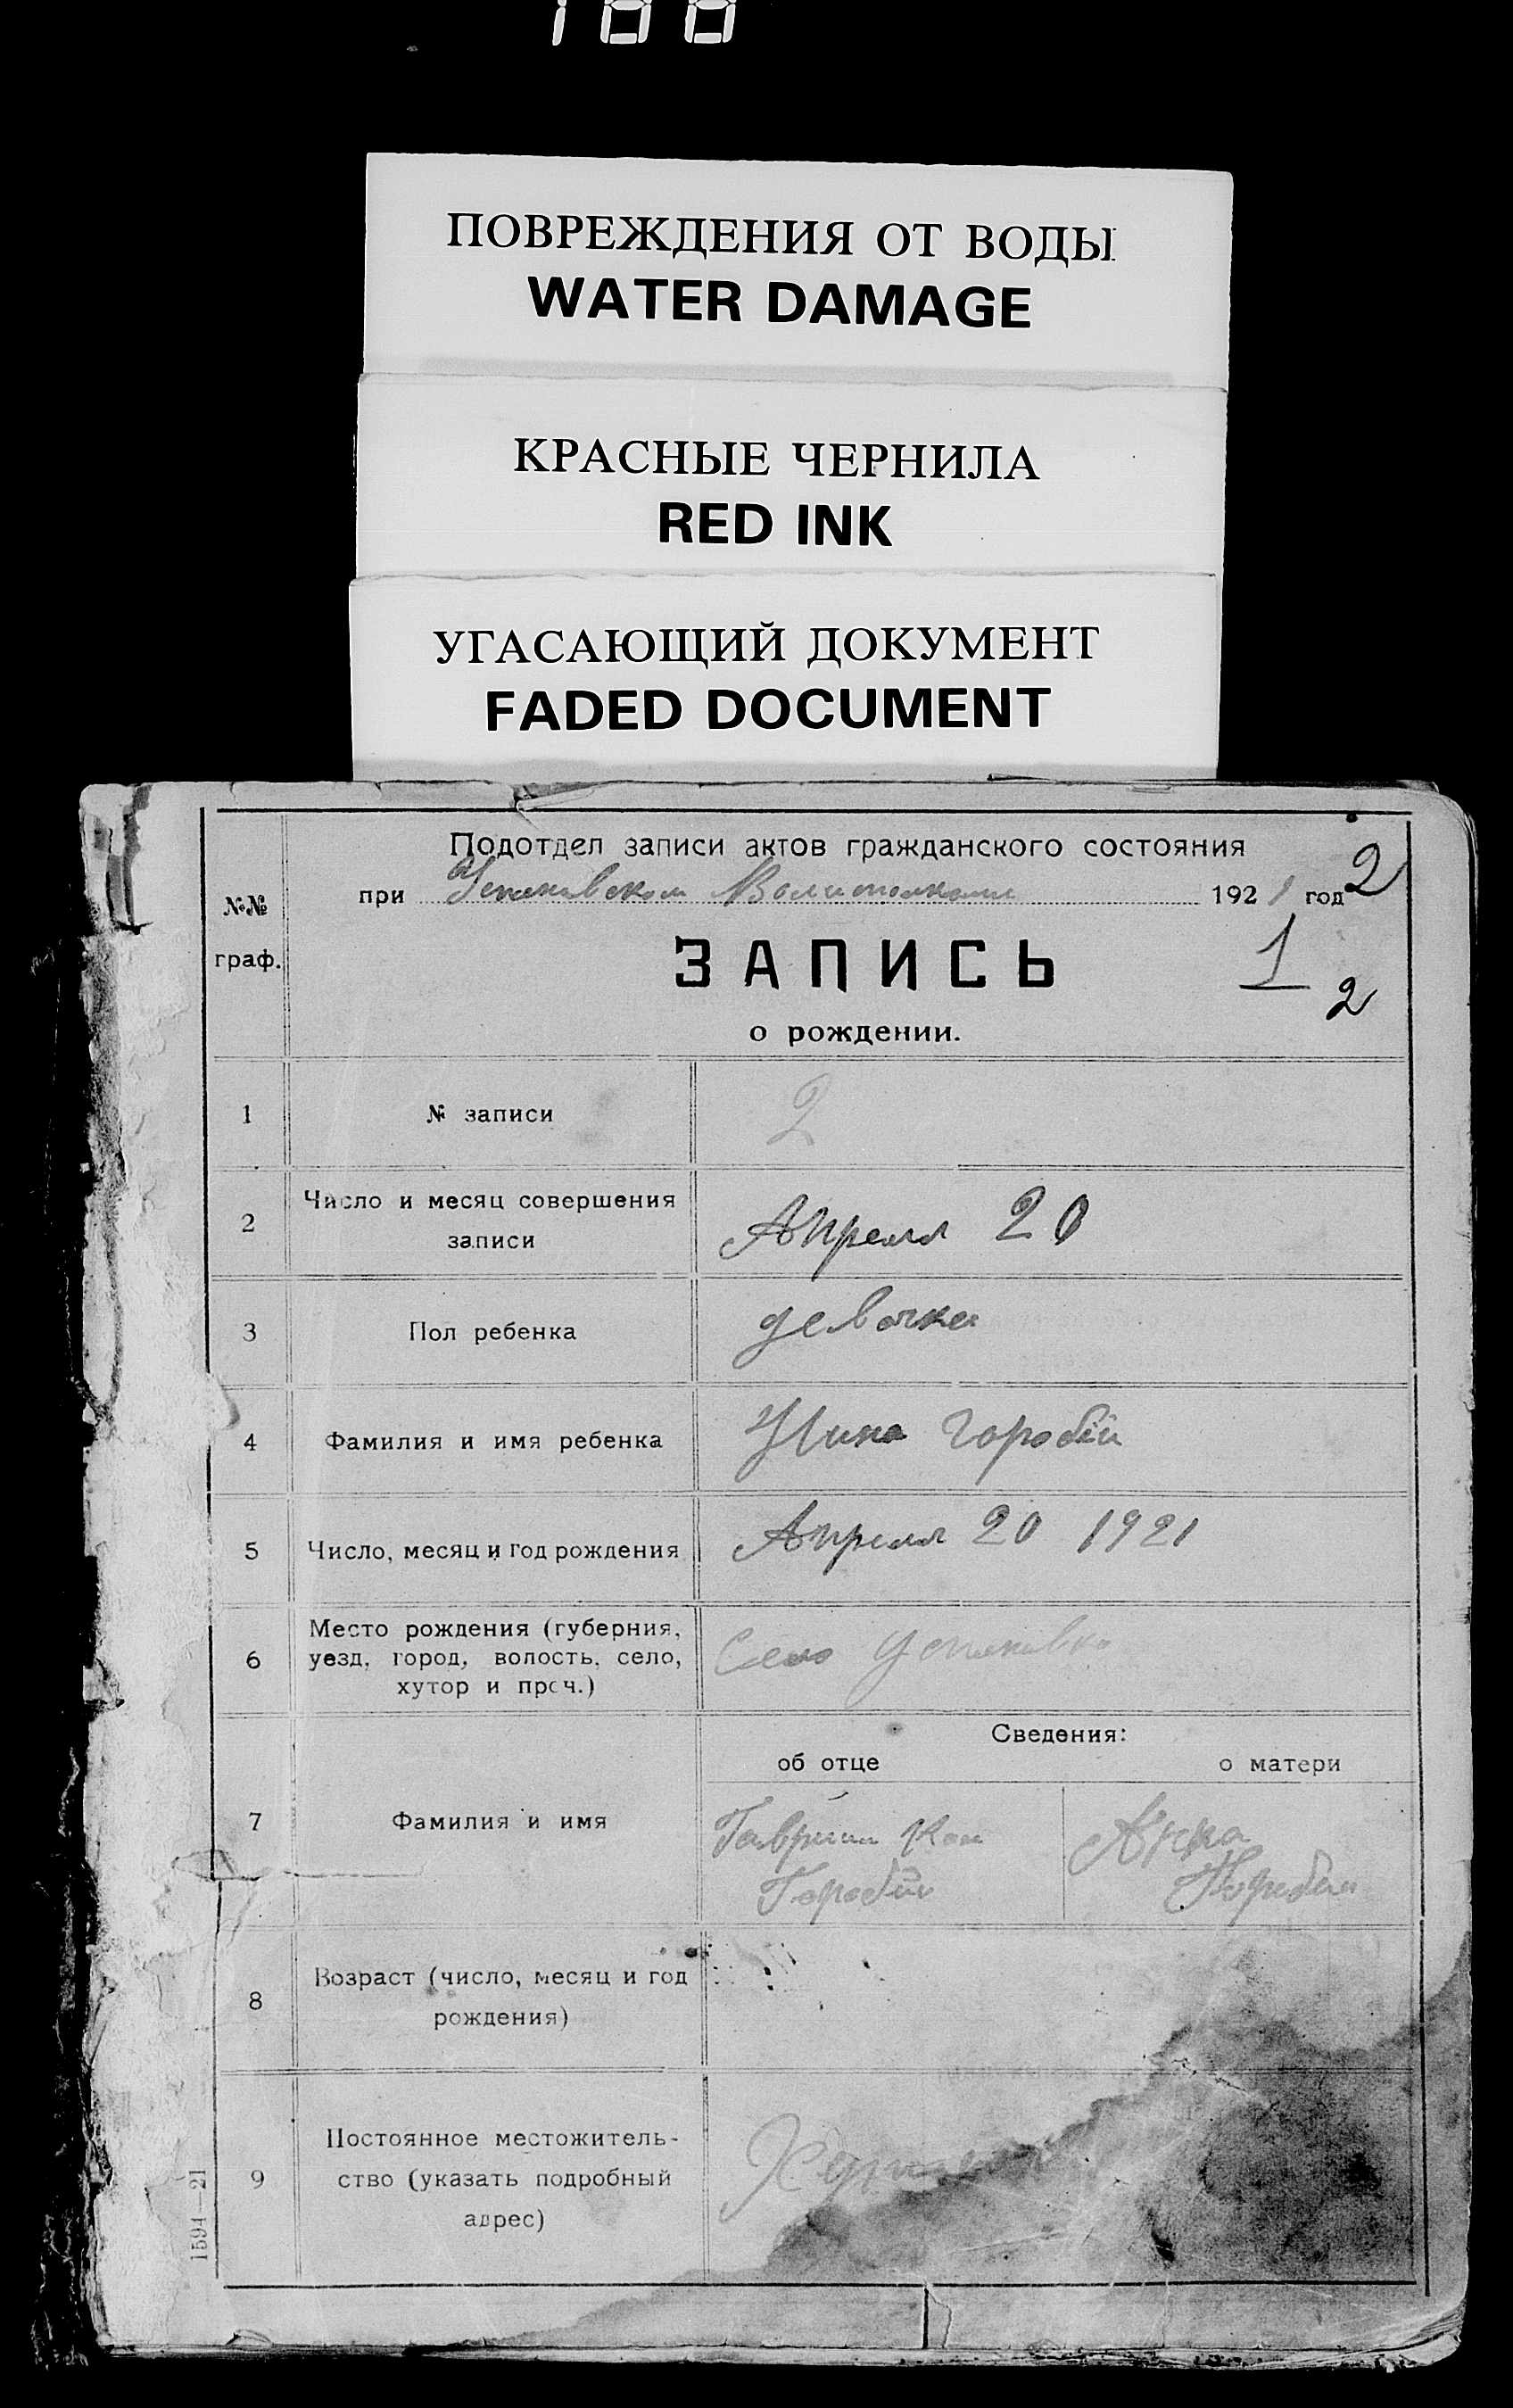 188
ПОВРЕЖДЕНИЯ ОТ ВОДЫ
WATER DAMAGE
КРАСНЫЕ ЧЕРНИЛА
RED INK
УГАСАЮЩИЙ ДОКУМЕНТ
FADED DOCUMENT
Подотдел записи актов гражданского состояния
2
№№
граф.
при 1921 год
ЗАПИСЬ
1
2
о рождении.
1 № записи 2
2 Число и месяц совершения
записи
Апреля 20
3 Пол ребенка девочка
4 Фамилия и имя ребенка Нина Горобій
5 Число, месяц и год рождения Апреля 20 1921
6 Место рождения (губерния,
уезд, город, волость, село,
хутор и проч.)
Село
Сведения:
об отце о матери
7 Фамилия и имя
Гавриил Анна
8 Возраст (число, месяц и год
рождения)
9 Постоянное местожитель-
ство (указать подробный
адрес)
1594—21